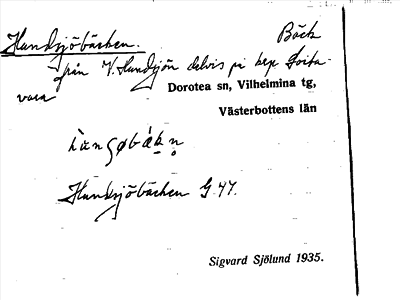 Hundsjöbäcken.
Bäck
från V. Hundsjön delvis på bep
vara
Dorotea sn, Vilhelmina tg,
Västerbottens län
Hundsjöbäcken G. 47.
Sigvard Sjölund 1935.